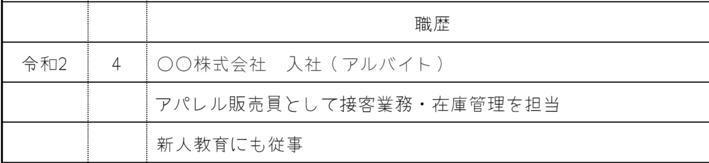 職歴
令和2 4 〇〇株式会社 入社（アルバイト）
アパレル販売員として接客業務・在庫管理を担当
新人教育にも従事